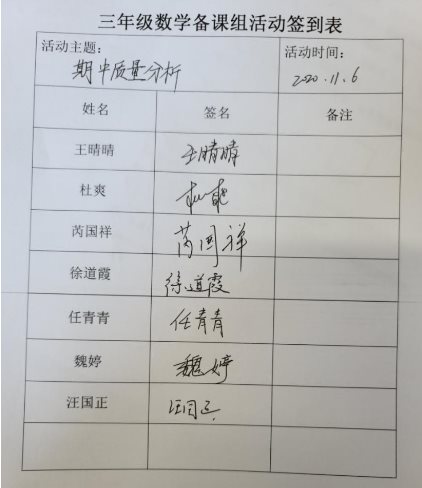 三年级数学备课组活动签到表
活动主题： 活动时间：
期中质量分析 2020.11.6
姓名 签名 备注
王晴晴 王晴晴
杜爽 杜爽
芮国祥 芮国祥
徐道霞 徐道霞
任青青 任青青
魏婷 魏婷
汪国正 汪国正